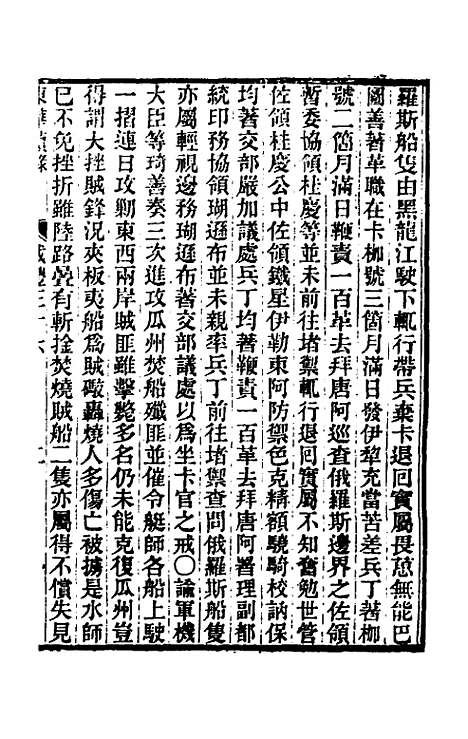 羅斯船隻由黑龍江駛下輒行帶兵棄卡退回實屬畏葸無能巴
圖善著革職在卡枷號三箇月滿日發伊犂充當苦差兵丁著枷
號二箇月滿日鞭責一百革去拜唐阿巡查俄羅斯邊界之佐領
暫委協領桂慶等並未前往堵禦輒行退回實屬不知奮勉世管
佐領桂慶公中佐領鐵星伊勒東阿防禦色克精額驍騎校訥保
均著交部嚴加議處兵丁均著鞭責一百革去拜唐阿署理副都
統印務協領瑚遜布並未親率兵丁前往堵禦查問俄羅斯船隻
亦屬輕視邊務瑚遜布著交部議處以爲坐卡官之戒〇諭軍機
大臣等琦善奏三次進攻瓜州焚船殲匪並催令艇師各船上駛
一摺連日攻勦東西兩岸賊匪雖擊斃多名仍未能克復瓜州豈
得謂大挫賊鋒況夾板夷船爲賊礮轟燒人多傷亡被擄是水師
已不免挫折雖陸路疊有斬擒焚燒賊船二隻亦屬得不償失見
東華續錄 咸豐三十六